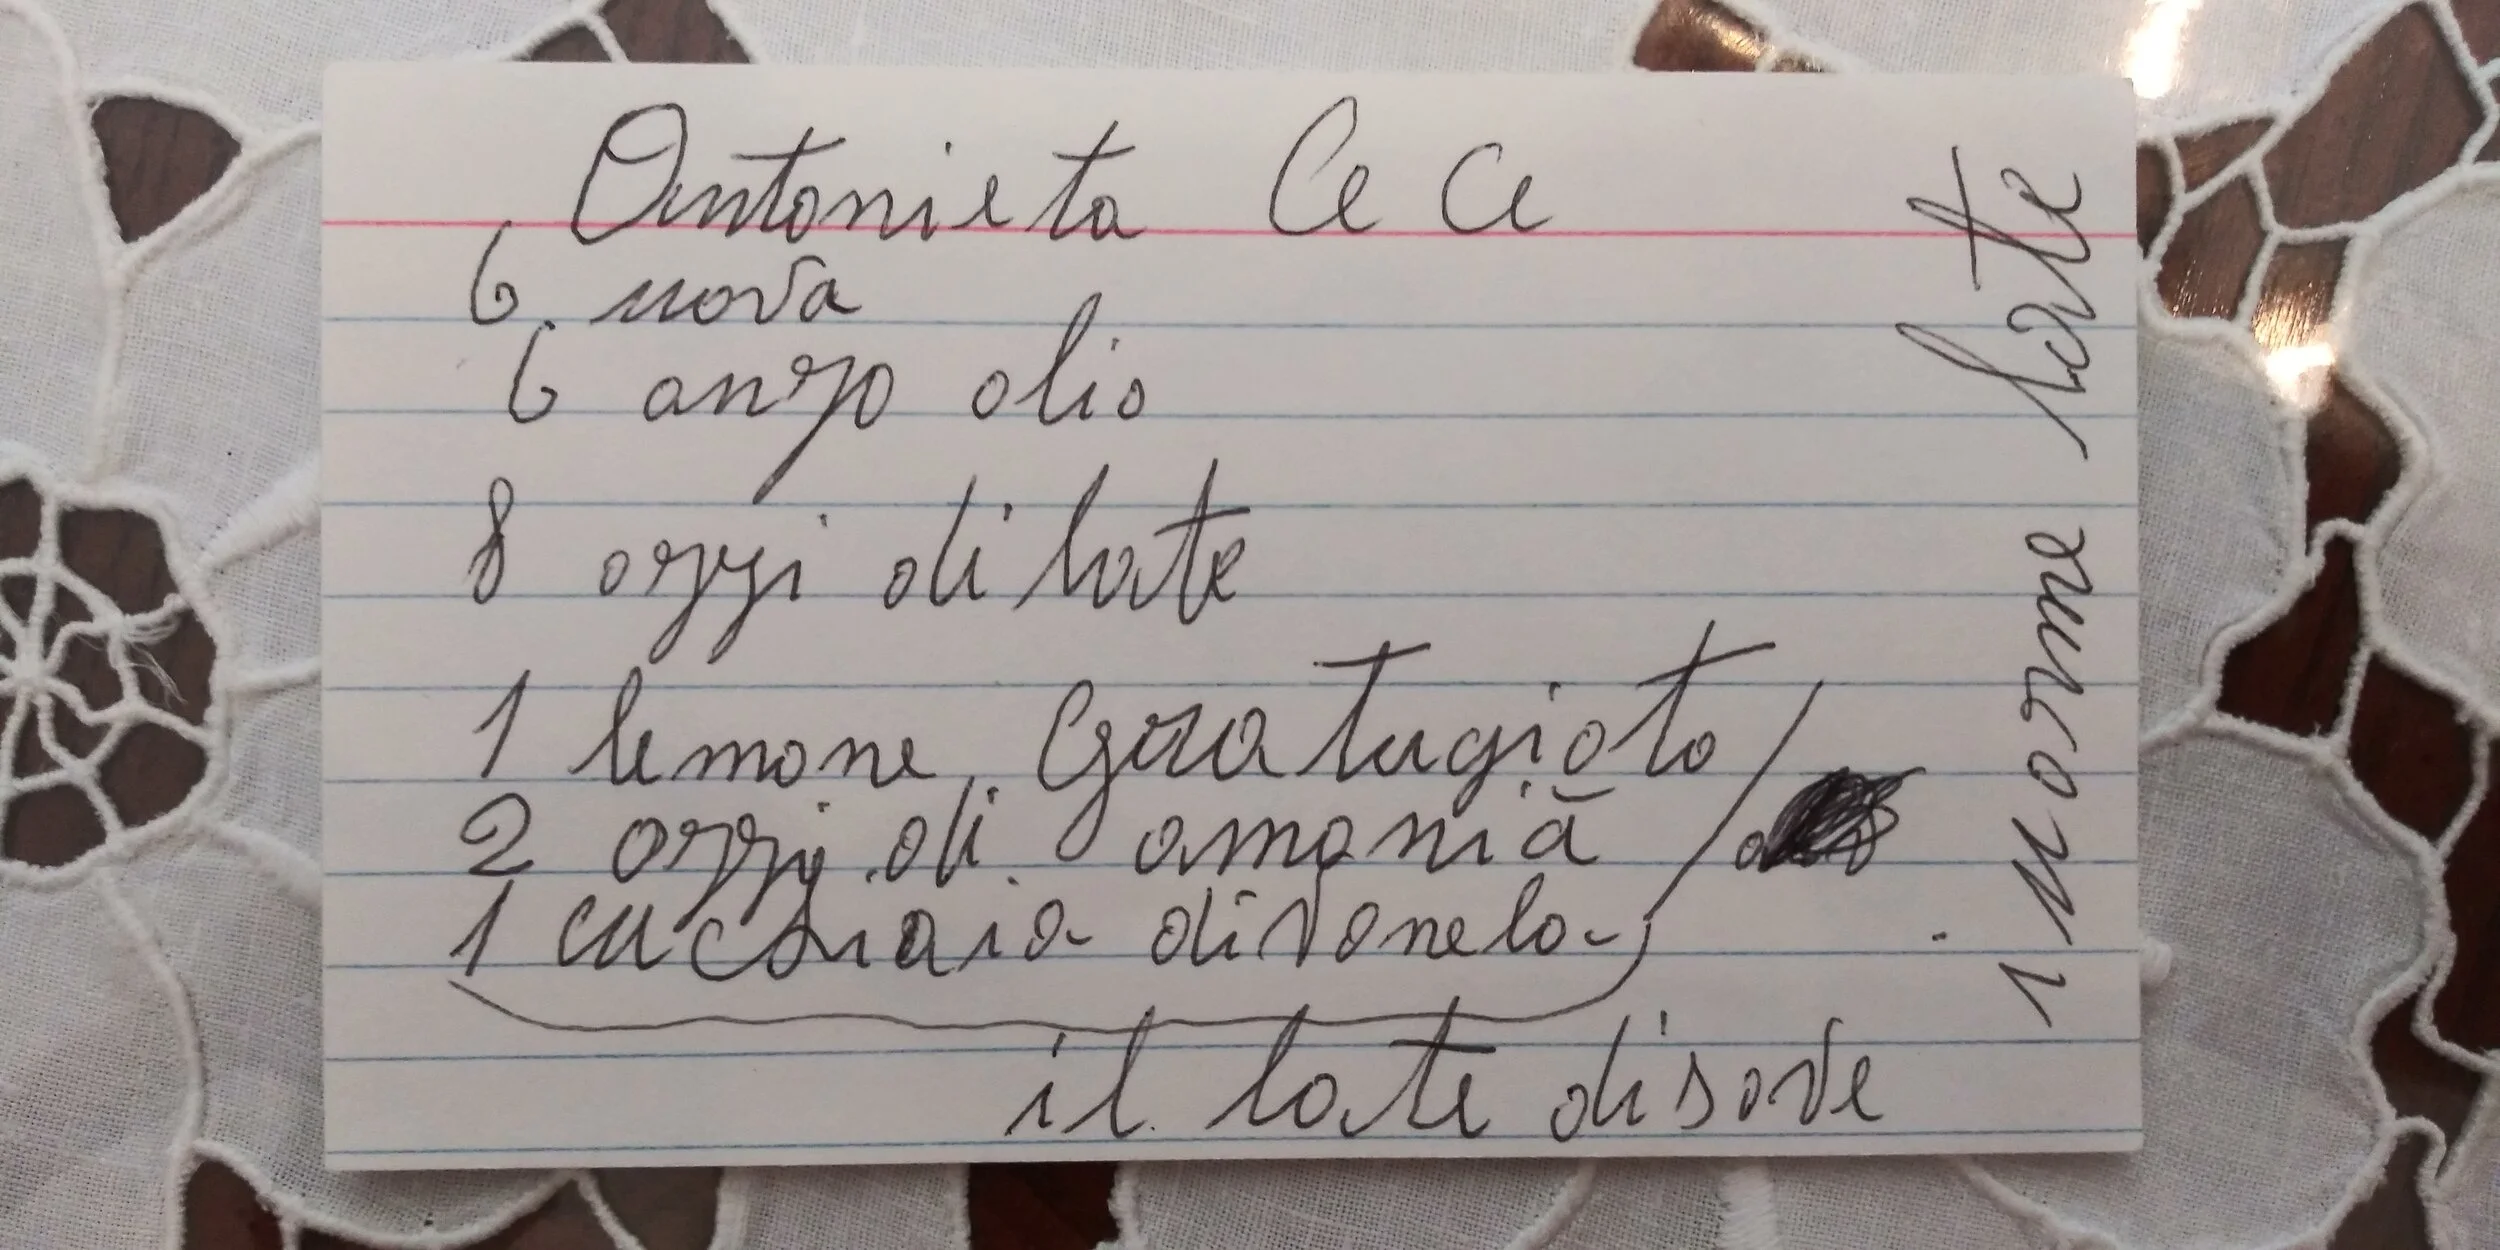 Antonieta Ce Ce
6 uova
6 anzo olio
8 ozzi di late
1 lemone gratugiato
2 ozzi di amonia
1 cuchiaio di vanela
il late disove
1 uorme late